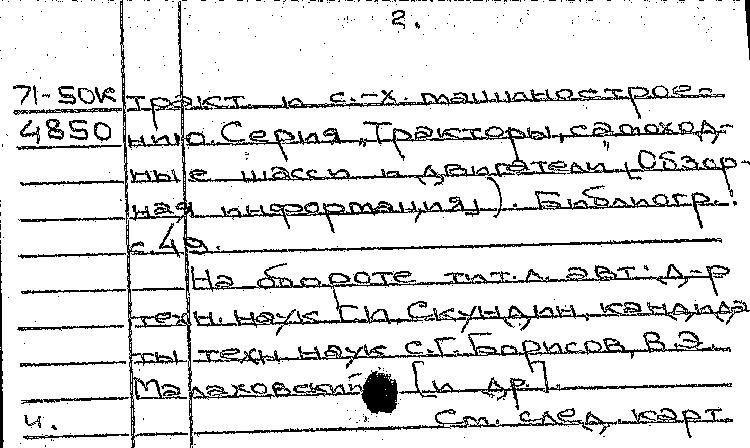 2.
71-50К тракт. и с.-х. машинострое-
4850 нию. Серия „Тракторы, самоход-
ные шасси и двигатели" [Обзор-
ная информация]). Библиогр.:
с. 49.
На обороте тит. л. авт.: д-р
техн. наук Г.И. Скундин, кандида-
ты техн. наук С.Г. Борисов, В.Э.
Малаховский [и др.].
ч. См. след. карт.